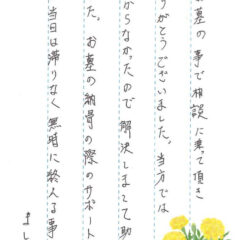 お墓の事で相談に乗って頂き
りがとうございました。当方では
からなかったので解決しまして助
た。お墓の納骨の際のサポート
当日は滞りなく無時に終える事
まし